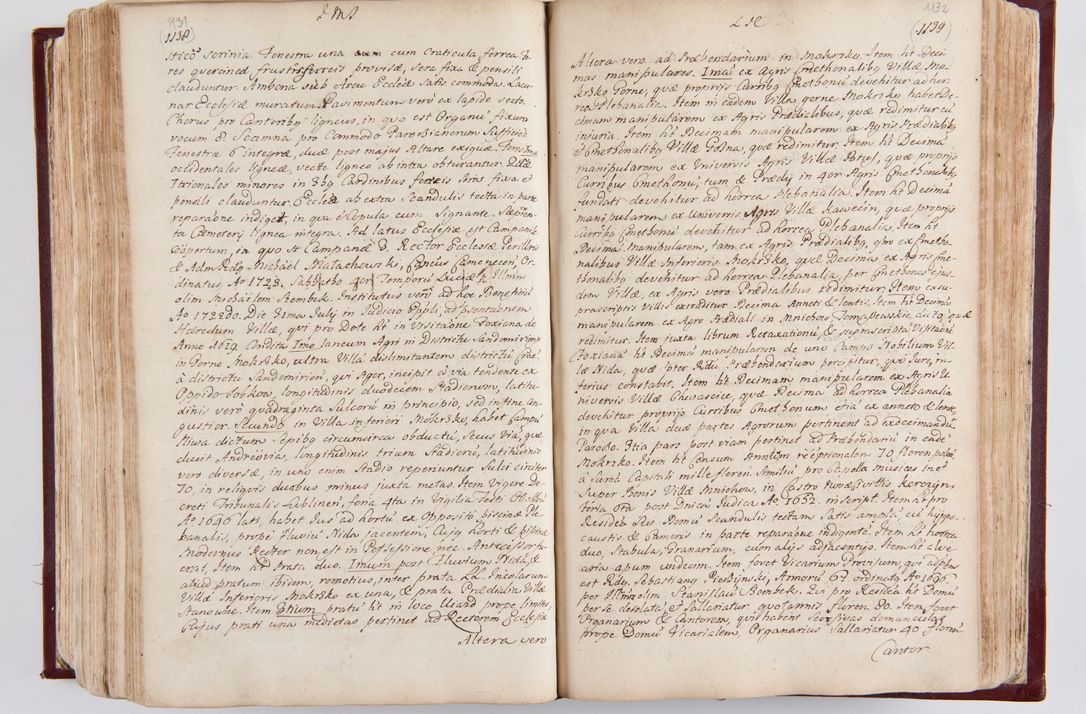 1131
(1138)
J M J
sticō scrinia. Fenestra una cum Craticula ferrea. Fo-
res querceinæ frustis ferreis provisæ, sera fixa & pensili
clauduntur. Ambona sub Arcu Ecclīæ satis commoda. Lacu-
nar Ecclesiæ muratum. Pavimentum verò ex lapide secto.
Chorus pro Cantoribg ligneus, in quo est Organū fixum
vocum 8. Scamna pro Commodo Parochianorum
Fenestra 6 integræ, duæ post majus Altare exiguæ.
occidentales ligneæ, vecte ligneo ab intra obturantur.
trionales minores in 3bg Cardinibus ferreis Seris fixa &
pensili clauduntur. Ecclīa ab extra Scandulis tecta in parte
reparaōne indiget, in qua est Cupula cum Signante. Sæpien-
ta Cæmeterij lignea integra. Ad latus Ecclesiæ est Campanile
Coopertum, in quo st Campanæ 3. Rector Ecclesiæ Perillris
& Adm Rdg Michäel Małachowski, Cancus Camenecen, Or-
dinatus Ao 1723. Sabbatho 4or Temporū Luciæ per Illmū
olim Michäelem Szembek. Institutus verò ad hoc Beneficiū
Ao 1728vo. Die 21ma July in Judicio Eppli, ad præsentaōnem
Hæredum Villæ, qui pro Dote ht in Visitaōne Foxiana de
Anno 1619 Condita Imo laneum Agri in Districtu Sandomirien
in Gorne Mokrsko, ultra Villā dislimitantem districtū
à districtu Sandomirien, qui Ager, incipit à via tendente ex
Oppido Sobkow, longitudinis duodecim Stadiorum, latitu-
dinis verò quadraginta Sulcorū in principio, sed in fine an-
gustior. Secundo in Villa inferiori Mokrsko, habet Campū
Niwa dictum, Cepibg circumcirca obductū, Secus Viā, quæ
ducit Andreoviā, longitudinis trium Stadiorū, latitudinis
verò diversæ, in uno enim Stadio reperiuntur Sulci circiter
70, in reliquis duobus minus juxta metas. Item Vigore De-
creti Tribunalis Lublinen, feria 4ta in Vigilia Festi
Ao 1646 lati, habet Jus ad hortū ex Opposito piscinæ Ple-
banalis, prope fluviū Nida jacentem, Cujg horti & piscinæ
modernus Rector non est in Possessione, nec Antecessor fu-
erat. Item ht Prata duo. Imum post Fluvium Nida, &
aliud pratum ibidem, remotius, inter prata LL. Incolarum
Villæ Inferioris Mokrsko ex una, & prata Prædialia Villæ
Stanowne. Item 3tium pratū ht in loco Uiazd prope limites,
Cujus prati una medietas pertinet ad Rectorem Ecclesiæ
Altera vero
1132
(1139)
L J C
Altera vero ad Præbendarium in Mokrsko. Item ht Deci-
mas manipulares. Imā ex Agris Cmethonalibg Villæ Mo-
krsko Gorne, quæ proprijs Curribg Cmethonū devehitur ad hor-
rea Plebanalia. Item in eadem Villa, gorne Mokrsko habet De-
cimam manipularem ex Agris Prædialibus, quæ redimitur cū
injuria. Item ht Decimam manipularem ex Agris Prædialibg
& Cmethonalibg Villæ Gosna, quæ redimitur. Item ht Decimā
manipularem ex Universis Agris Villæ Brzeg, quæ proprijs
Curribus Cmethonū, tum & Prædij in 4or Agris Cmethonalibg
fundati devehitur ad horrea Plebanalia. Item ht Decimā
manipularem ex Universis Agris Villæ Rawęcin, quæ proprijs
Curribg Cmethonū devehitur ad horrea Plebanalia. Item ht
Decimā manipularem, tam ex Agris Prædialibg, qm ex Cmetho-
nalibus Villæ Inferioris Mokrsko, quæ Decima ex Agris Cme-
thonalibg devehitur ad horrea Plebanalia, per Cmethones ejus-
dem Villæ, ex Agris verò Prædialibus redimitur. Item ex su-
prascriptis Villis exceditur Decima Anneti & lentis. Item ht Decimā
manipularem ex Agro Prædiali in Mnichow, Tomaszewskie dicta, quæ
redimitur. Item juxta librum Retaxationū, & suprascriptā Visitaōnē
Foxianā ht Decimā manipularem de uno Campo Nobilium Vil-
læ Nida, quæ Ipter Rdū Præbendarium percipitur, quo Jure, in-
ferius constabit. Item ht Decimam manipularem ex Agris U-
niversis Villæ Chwascice, quæ Decima ad horrea Plebanalia
devehitur proprijs Curribus Cmethonum etiā ex anneto & lente,
in qua Villa duæ partes Agrorum pertinent ad excocimandū
Parocho. 3tia pars post viam pertinet ad Præbendariū in eadē
Mokrsko. Item ht Censum Annūm reēptionalem 70. floren. polon.
à Sumā Capitali mille floren. Similiū pro Capella musices in
Super Bonis Villæ Mnichow, in Castro Novæ Civittis Korczyn,
feria 6ta post Dnicā Judica Ao 1652. inscript. Item ht pro
Residēā Sua Domū Scandulis tectam Satis amplā cū hypo-
caustis & Cameris in parte reparaōne indigentē. Item ht horrea
duo, Stabula, Granarium, cum alijs adjacentijs. Item ht alve-
aria apum undecim. Item fovet Vicarium Provisum, qui ad phns
est Rdg Sebastiang Piedzinski, Annorū 67. ordinatg Ao 1696.
per Illmū olim Stanislaū Bembek. Qui pro Residēā ht Domū
per se desolatā, & Sallariatur quotannis floren. 80. Item fovet
Organarium & Cantorem, qui habent Seorsivas domunculas
prope Domū Vicarialem. Organarius Sallariatur 40. florenis
Cantor